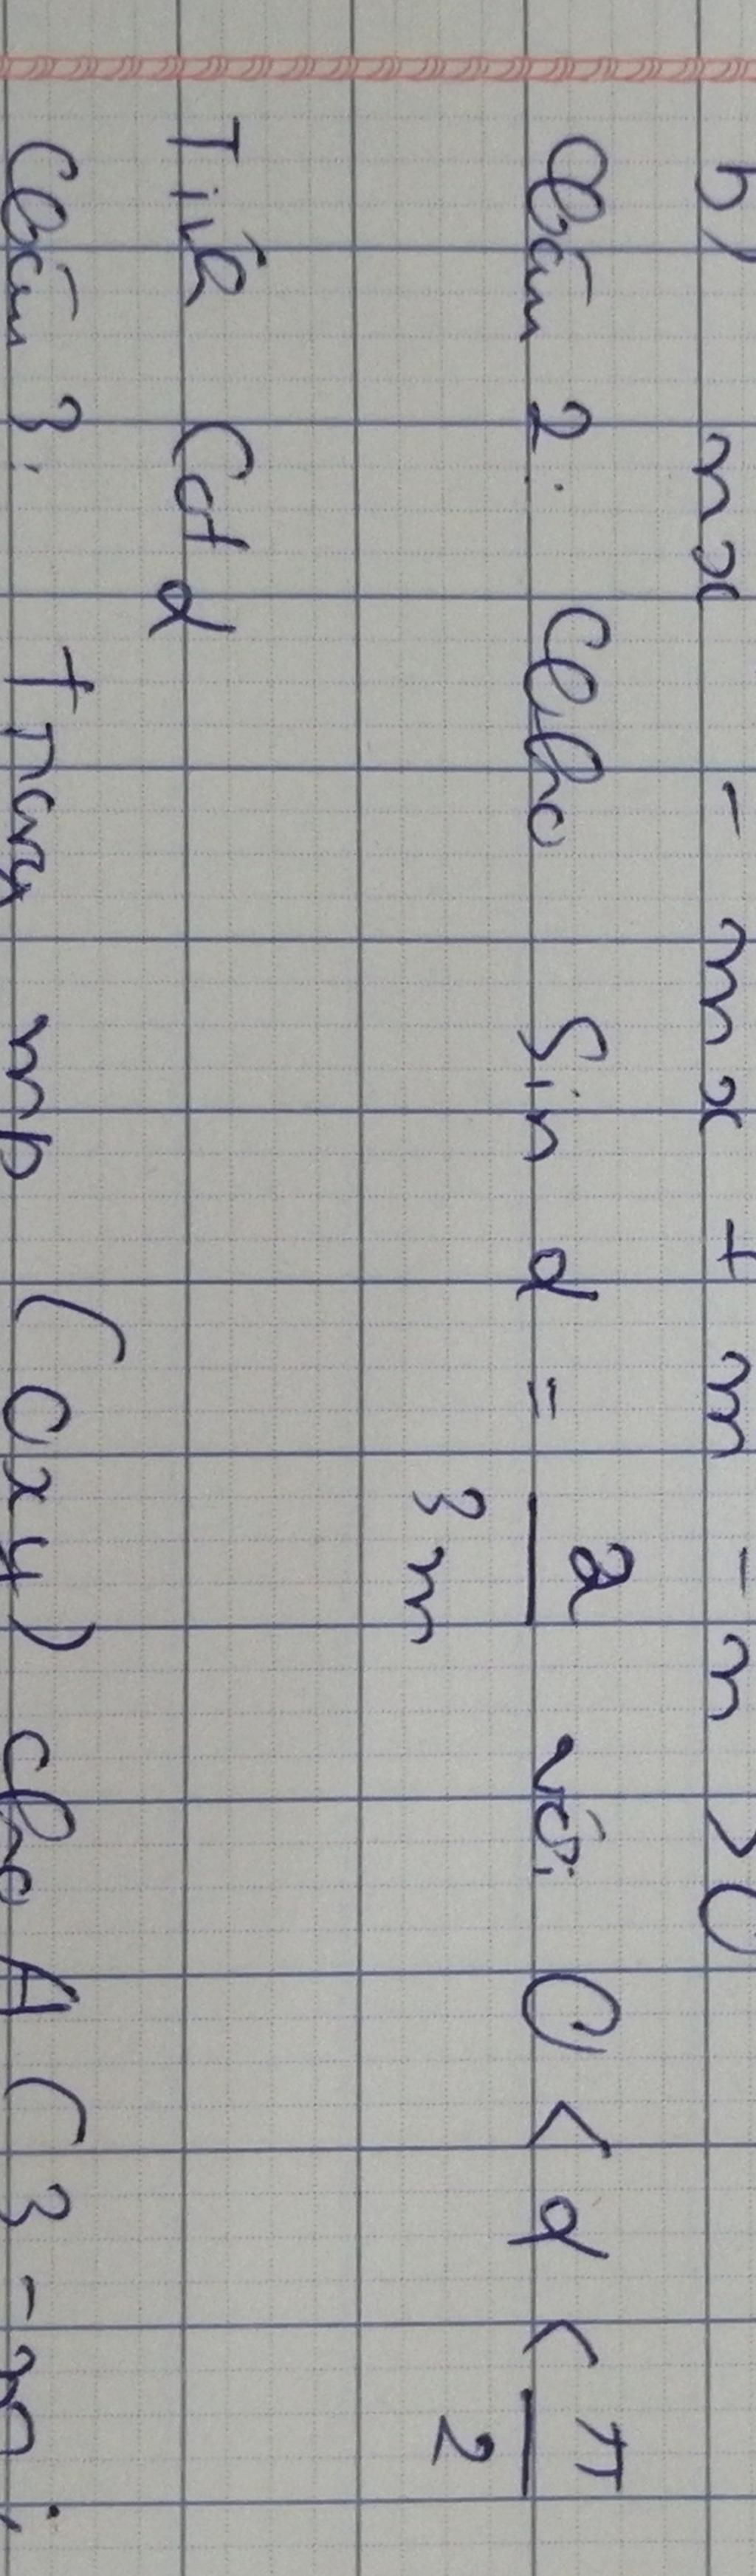 b) nx - mx + m - n > 0
Câu 2: Cho Sin α = 2/3m với 0 < α < π/2
Tính Cot α
Câu 3: Trong mp (Oxy) cho A (3 - m;